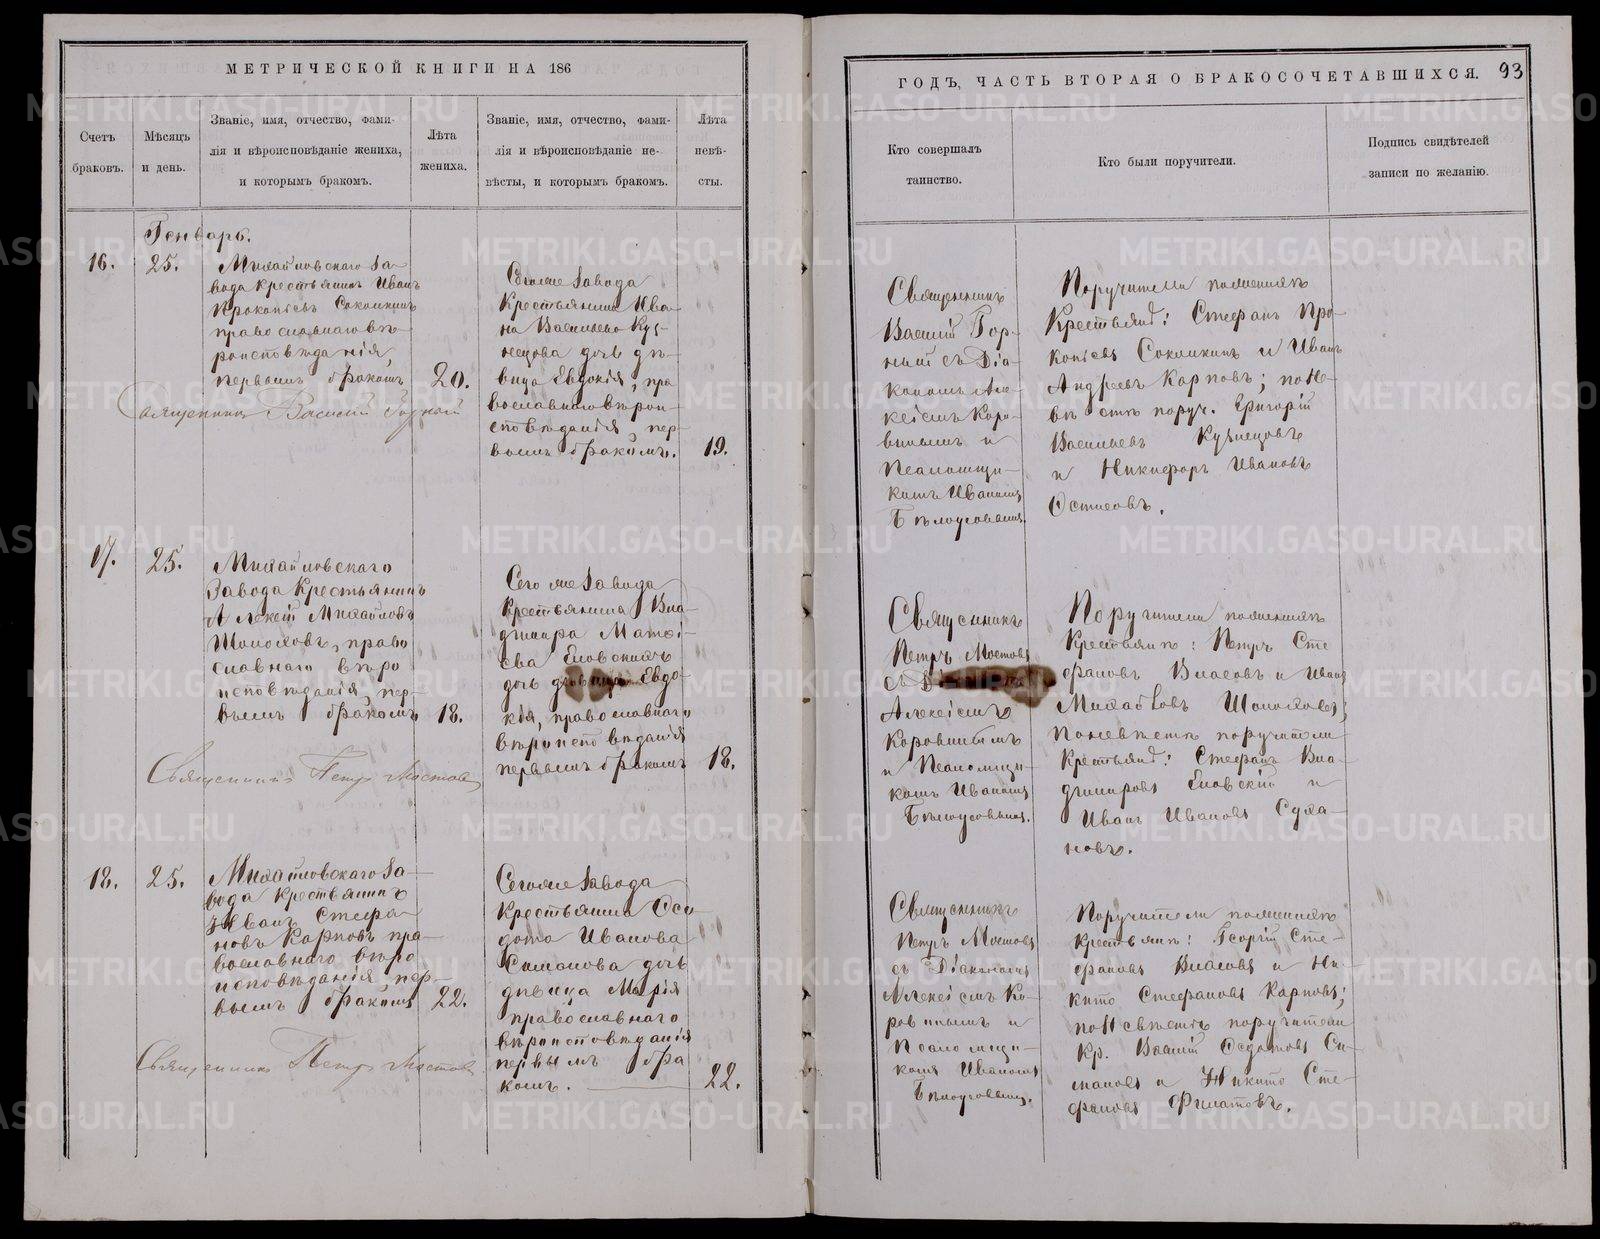 МЕТРИЧЕСКОЙ КНИГИ НА 186
Счетъ браковъ.
Мѣсяцъ и день.
Званіе, имя, отчество, фами-
лія и вѣроисповѣданіе жениха,
и которымъ бракомъ.
Лѣта жениха.
Званіе, имя, отчество, фами-
лія и вѣроисповѣданіе не-
вѣсты, и которымъ бракомъ.
Лѣта невѣ-
сты.
Генварь.
16.
25.
Михайловскаго За-
вода крестьянинъ Иванъ
Прокопьевъ Соколкинъ
православнаго вѣ-
роисповѣданія,
первымъ бракомъ
20.
Священникъ Василій Горной
Сегоже Завода
Крестьянина Ива-
на Васильева Куз-
нецова дочь дѣ-
вица Евдокія, пра
вославнаго вѣрои-
сповѣданія, пер-
вымъ бракомъ.
19.
17.
25.
Михайловскаго
Завода Крестьянинъ
Алексѣй Михайловъ
Шолоховъ, право
славнаго вѣро
исповѣданія, пер-
вымъ бракомъ
18.
Священникъ Петръ Мостовъ
Сегоже Завода
Крестьянина Вла-
диміра Матвѣ-
ева Еловскихъ
дочь дѣвица Евдо-
кія, православнаго
вѣроисповѣданія
первымъ бракомъ
18.
18.
25.
Михайловскаго За-
вода Крестьянинъ
Иванъ Стефа-
новъ Карповъ пра-
вославнаго вѣро
исповѣданія пер-
вымъ бракомъ
22.
Священникъ Петръ Мостовъ
Сегоже Завода
Крестьянина
Ивановa
Симанова дочь
дѣвица Марія
православнаго
вѣроисповѣданія
первымъ бра
комъ.
22.
ГОДЪ, ЧАСТЬ ВТОРАЯ О БРАКОСОЧЕТАВШИХСЯ.
93
Кто совершалъ
таинство.
Кто были поручители.
Подпись свидѣтелей
записи по желанію.
Священникъ
Василій Гор-
ный съ Діа-
кономъ Але-
ксѣемъ Коро-
винымъ и
Псаломщи-
комъ Иваномъ
Бѣлоусовымъ.
Поручители по женихѣ
Крестьяне: Стефанъ Про-
копіевъ Соколкинъ и Иванъ
Андреевъ Карповъ; по не-
вѣстѣ поруч. Григорій
Васильевъ Кузнецовъ
и Никифоръ Ивановъ
Священникъ
Петръ Мостовъ
Алексѣемъ
Коровинымъ
и Псаломщи-
комъ Иваномъ
Бѣлоусовымъ.
Поручители по женихѣ
Крестьяне: Петръ Сте
фановъ Власовъ и Иванъ
Михайловъ Шолоховъ;
по невѣстѣ поручители
Крестьяне: Стефанъ Вла-
диміровъ Еловскій и
Иванъ Ивановъ Суха-
новъ.
Священникъ
Петръ Мостовъ
съ Діакономъ
Алексѣемъ Ко-
ровинымъ и
Псаломщи-
комъ Иваномъ
Бѣлоусовымъ.
Поручители по женихѣ
крестьяне: Георгій Сте-
фановъ Власовъ и Ни-
кита Стефановъ Карповъ;
по невѣстѣ поручители
Кр. Василій Си-
мановъ и Никита Сте-
фановъ Филатовъ.
METRIKI.GASO-URAL.RU